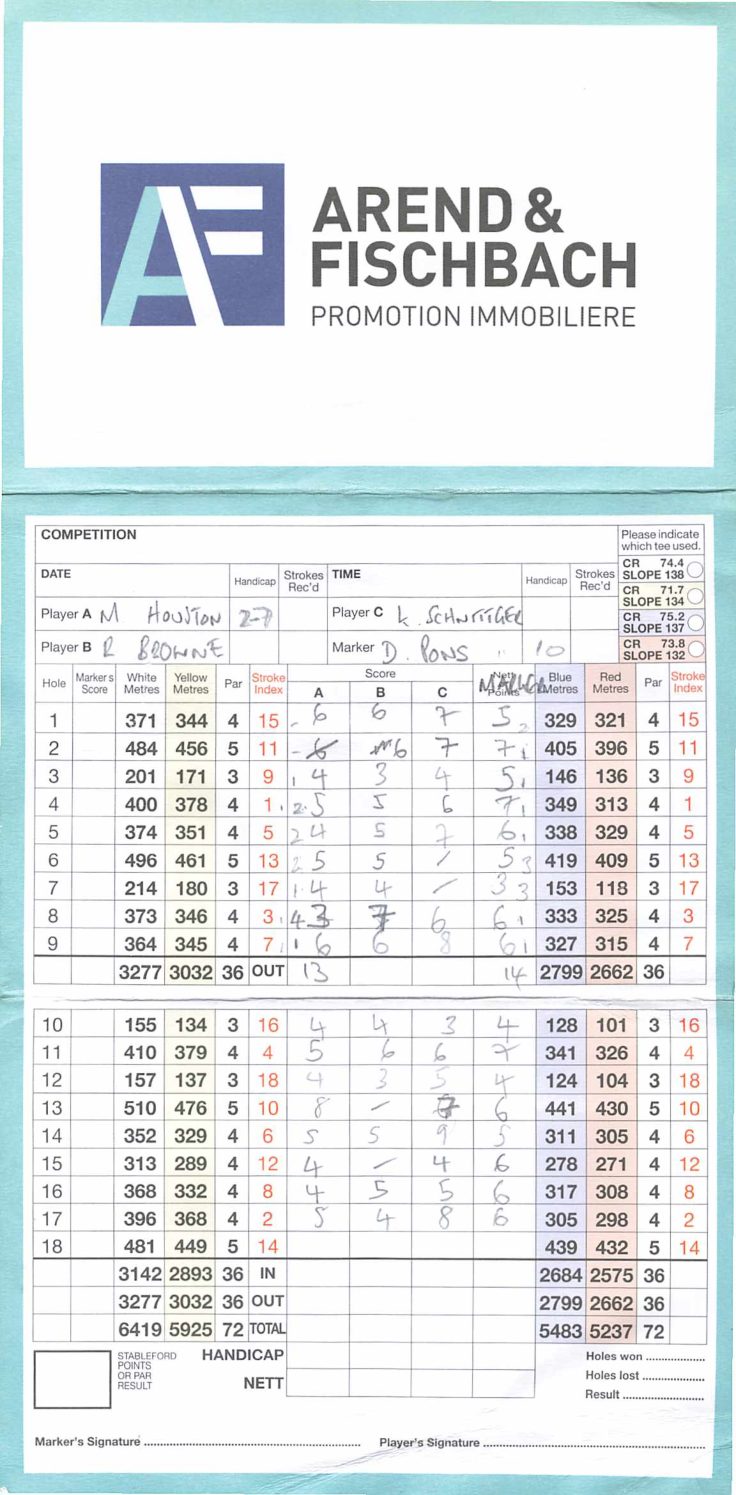 AREND &
FISCHBACH
PROMOTION IMMOBILIERE
COMPETITION
Please indicate which tee used.
DATE Handicap Strokes Rec'd TIME Handicap Strokes Rec'd
CR 74.4 SLOPE 138
CR 71.7 SLOPE 134
Player A M HOUSTON 27 Player C K. SCHNITTGER
CR 75.2 SLOPE 137
Player B R BROWNE Marker D. PONS 10
CR 73.8 SLOPE 132
Hole Marker's Score White Metres Yellow Metres Par Stroke Index Score A B C Nett Points Blue Metres Red Metres Par Stroke Index
1 371 344 4 15 - 6 6 7 5 2 329 321 4 15
2 484 456 5 11 - 6 6 7 7 1 405 396 5 11
3 201 171 3 9 1 4 3 4 5 1 146 136 3 9
4 400 378 4 1 2 5 5 6 7 1 349 313 4 1
5 374 351 4 5 2 4 5 7 6 1 338 329 4 5
6 496 461 5 13 2 5 5 / 5 3 419 409 5 13
7 214 180 3 17 1 4 4 - 3 3 153 118 3 17
8 373 346 4 3 4 3 7 6 6 1 333 325 4 3
9 364 345 4 7 1 6 6 8 6 1 327 315 4 7
3277 3032 36 OUT 13 14 2799 2662 36
10 155 134 3 16 4 4 3 4 128 101 3 16
11 410 379 4 4 5 6 6 7 341 326 4 4
12 157 137 3 18 4 3 5 4 124 104 3 18
13 510 476 5 10 8 - 7 6 441 430 5 10
14 352 329 4 6 5 5 9 5 311 305 4 6
15 313 289 4 12 4 - 4 6 278 271 4 12
16 368 332 4 8 4 5 5 6 317 308 4 8
17 396 368 4 2 5 4 8 6 305 298 4 2
18 481 449 5 14 439 432 5 14
3142 2893 36 IN 2684 2575 36
3277 3032 36 OUT 2799 2662 36
6419 5925 72 TOTAL 5483 5237 72
STABLEFORD POINTS OR PAR RESULT HANDICAP Holes won
NETT Holes lost
Result
Marker's Signature Player's Signature